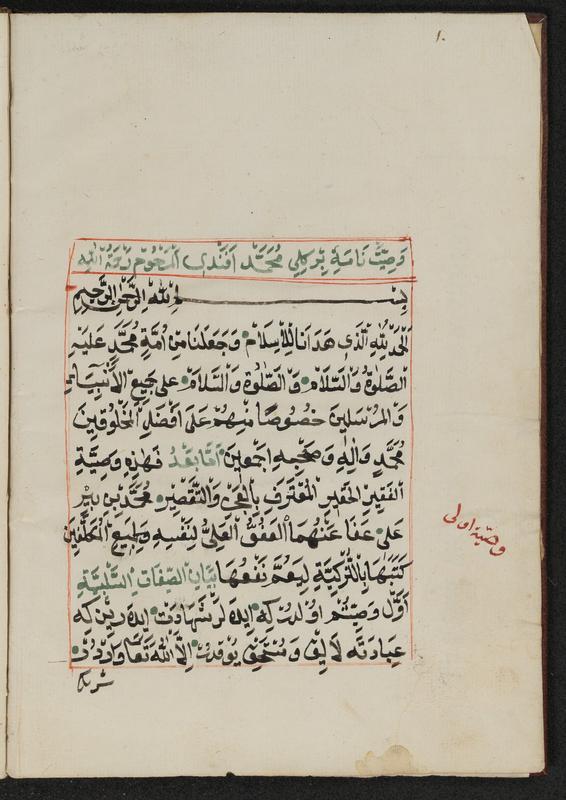 ١٠
وَصِيَّتْ نَامَهٔ بِرْكِلِى مُحَمَّدْ اَفَنْدِى اَلْمَرْحُومْ رَحْمَةُ اللّٰه
بِسْــــــــمِ اللّٰهِ الرَّحْمٰنِ الرَّحِيمِ
اَلْحَمْدُ لِلّٰهِ الَّذِى هَدَانَا لِلْاِسْلَامِ وَجَعَلَنَا مِنْ اُمَّةِ مُحَمَّدٍ عَلَيْهِ
الصَّلٰوةُ وَالسَّلَامُ وَالصَّلٰوةُ وَالسَّلَامُ عَلٰى جَمِيعِ الْاَنْبِيَاءِ
وَالْمُرْسَلِينَ خُصُوصًا مِنْهُمْ عَلَى اَفْضَلِ الْمَخْلُوقِينَ
مُحَمَّدٍ وَاٰلِهِ وَصَحْبِهِ اَجْمَعِينَ اَمَّا بَعْدُ فَهٰذِهِ وَصِيَّةِ
الْفَقِيرِ الْحَقِيرِ الْمُعْتَرِفِ بِالْعَجْزِ وَالتَّقْصِيرِ مُحَمَّدْ بْنِ پِيرْ
عَلِى عَفَا عَنْهُمَا الْعَفُوُّ الْعَلِىُّ لِنَفْسِهِ وَلِجَمِيعِ الْمُكَلَّفِينَ
كَتَبْتُهَا بِالتُّرْكِيَّةِ لِيَعُمَّ نَفْعُهَا بَيَانُ الصِّفَاتِ السَّلْبِيَّةِ
اَوَّلْ وَصِيَّتُمْ اوُلْدُرْكِه ايدَه لَرْ شَهَادَتْ ايدَه رِينْ كه
عِبَادَتَه لَايِقْ وَمُسْتَحِقْ يُوقْدُرْ اِلَّا اللّٰه تَعَالٰى وَارْدُرْ
شريك
وصيت اولى